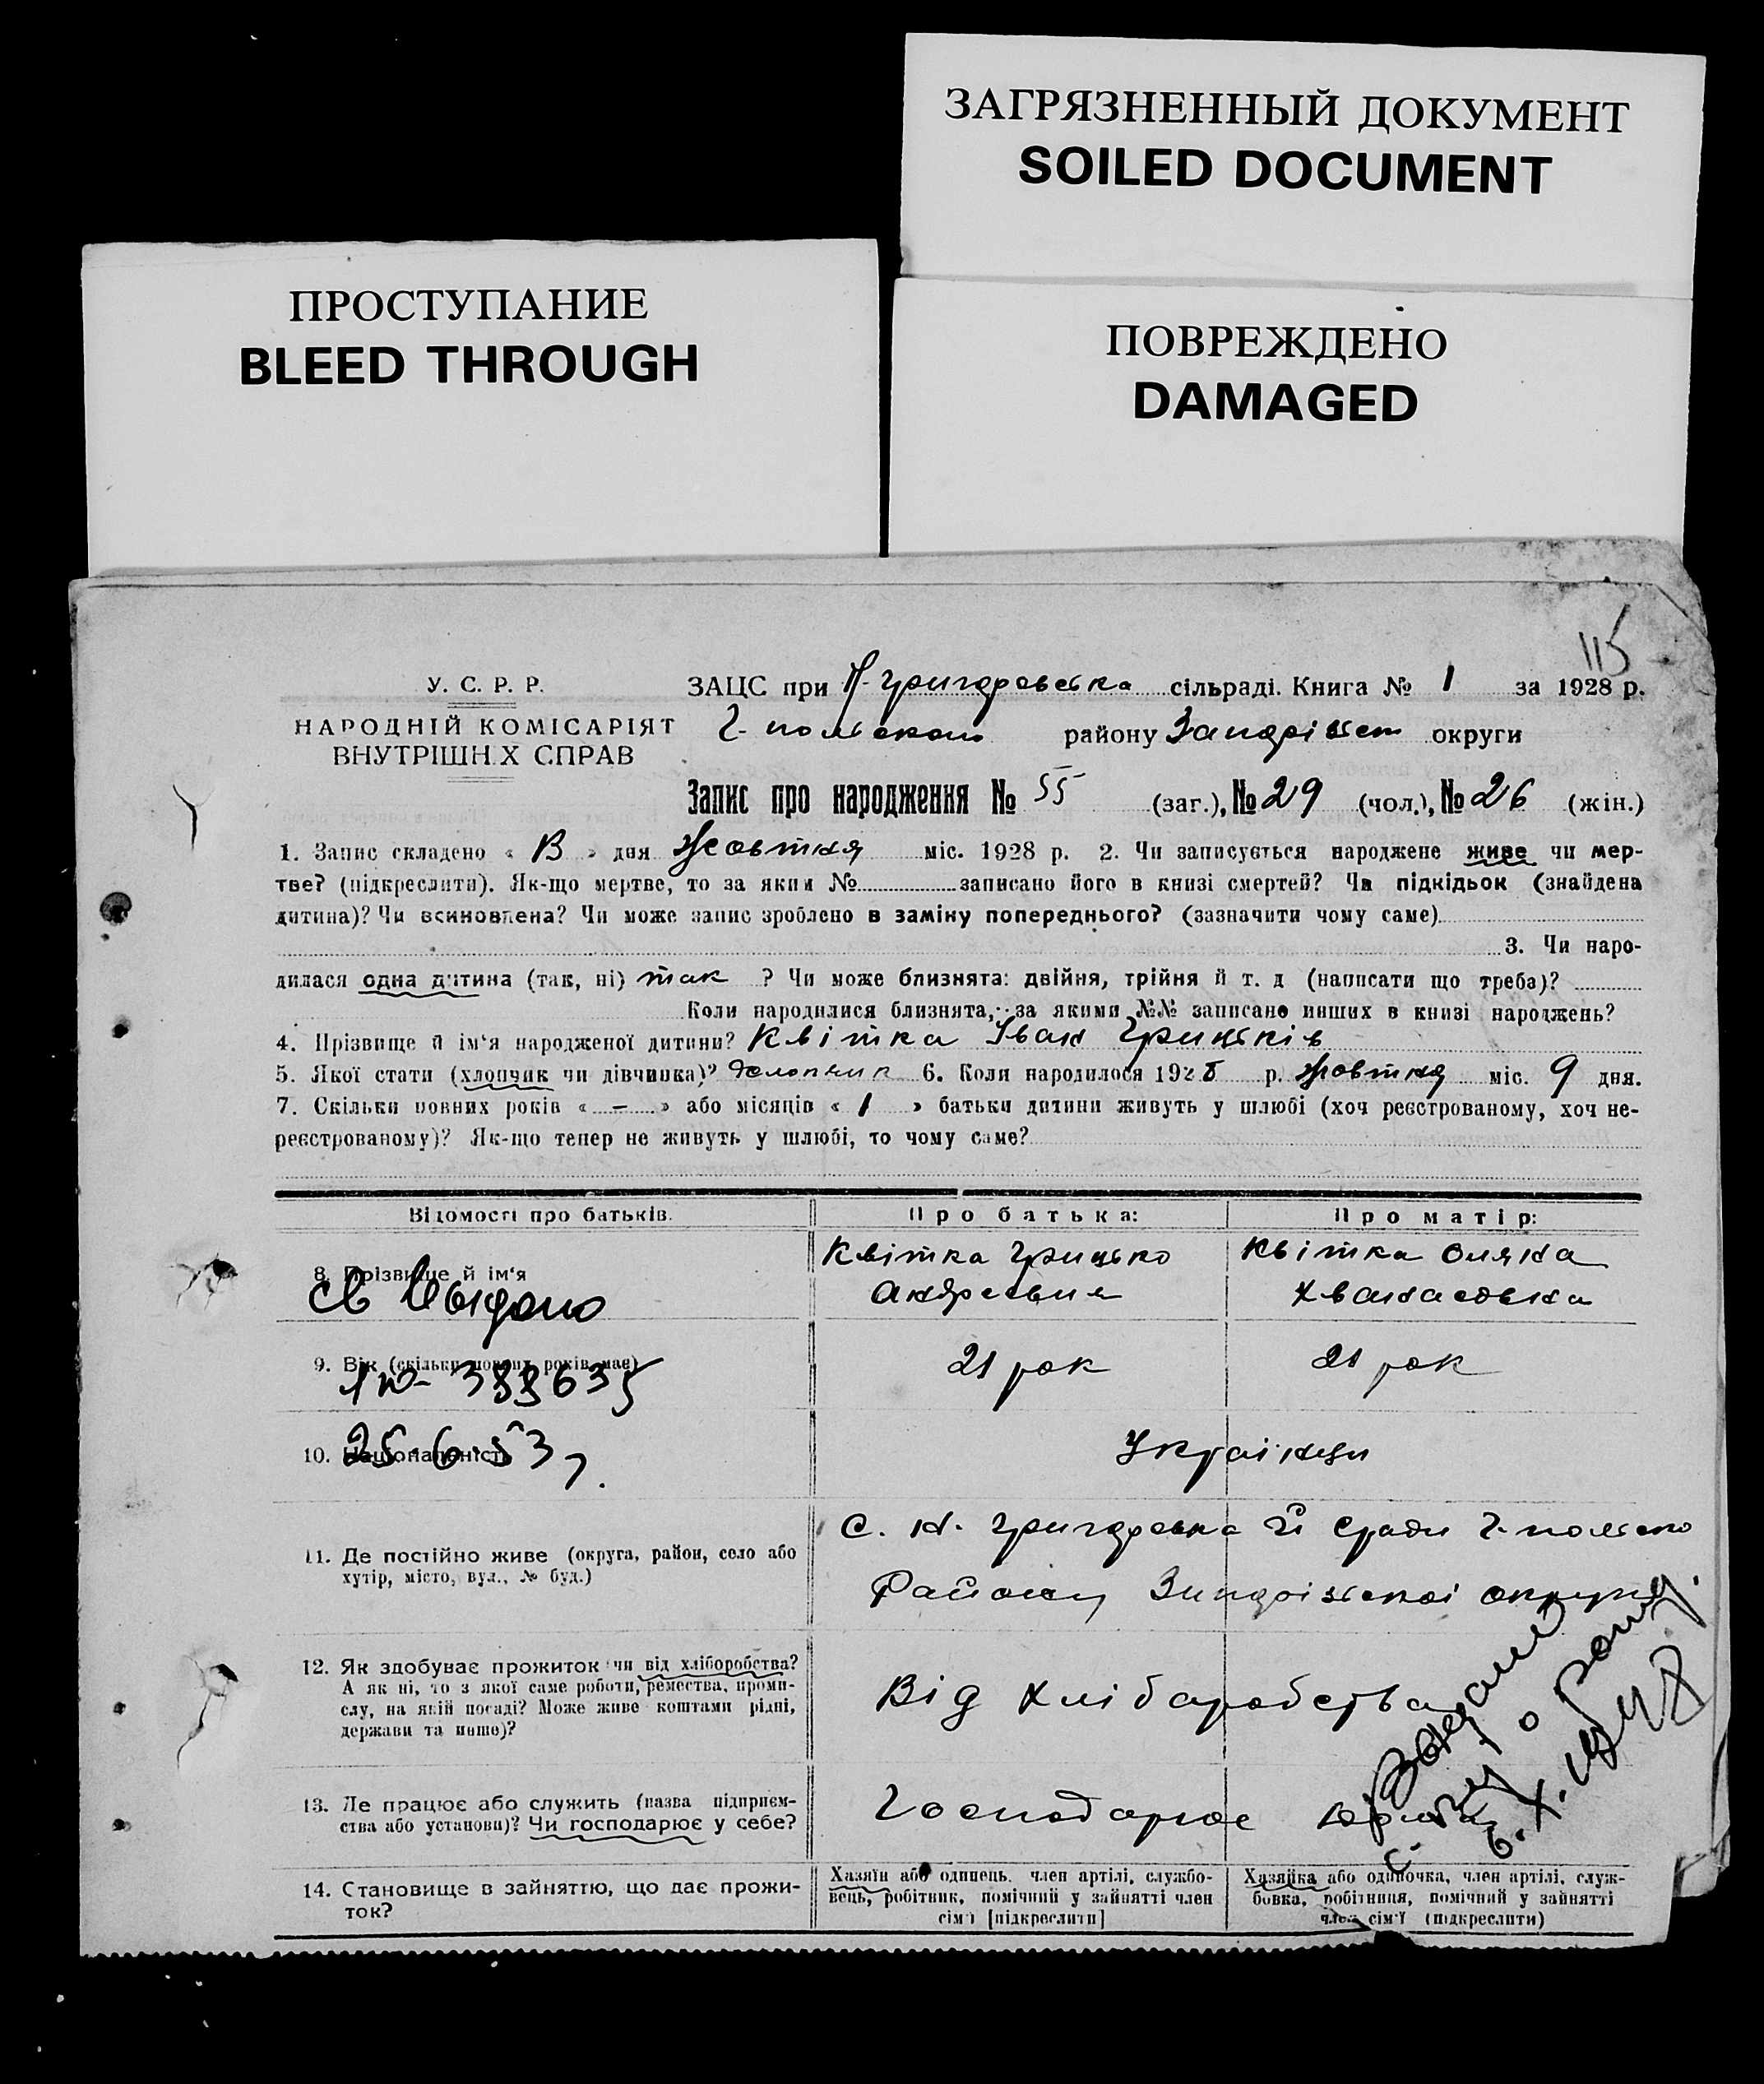 ЗАГРЯЗНЕННЫЙ ДОКУМЕНТ
SOILED DOCUMENT
ПРОСТУПАНИЕ
BLEED THROUGH
ПОВРЕЖДЕНО
DAMAGED
115
У. С. Р. Р.
НАРОДНІЙ КОМІСАРІЯТ
ВНУТРІШН.Х СПРАВ
ЗАЦС при Н-григоровська сільраді. Книга № 1 за 1928 р.
Г-польского району Запоріжськ округи
Запис про народження № 55 (заг.), № 29 (чол.), № 26 (жін.)
1. Запис складено « » дня Жовтня міс. 1928 р. 2. Чи записується народжене живе чи мер-
тве? (підкреслити). Як-що мертве, то за яким № записано його в книзі смертей? Чи підкідьок (знайдена
дитина)? Чи всиновлена? Чи може запис зроблено в заміну попереднього? (зазначити чому саме)
3. Чи наро-
дилася одна дитина (так, ні) так ? Чи може близнята: двійня, трійня й т. д (написати що треба)?
Коли народилися близнята, за якими №№ записано инших в книзі народжень?
4. Прізвище й ім'я народженої дитини? Квітка Іван Грицьків
5. Якої стати (хлопчик чи дівчинка)? Хлопчик 6. Коли народилося 1928 р. жовтня міс. 9 дня.
7. Скільки повних років « — » або місяців « 1 » батьки дитини живуть у шлюбі (хоч реєстрованому, хоч не-
реєстрованому)? Як-що тепер не живуть у шлюбі, то чому саме?
Відомості про батьків.
Про батька:
Про матір:
8. Прізвище й ім'я
Квітка Грицько
Андреєвич
Квітка Оляна
Хванасовна
Св Выдано
9. Вік (скільки повних років має)
21 рок
21 рок
10. Національність
25.6.53 г.
Українци
11. Де постійно живе (округа, район, село або
хутір, місто, вул., № буд.)
С. Н. григоровка Сради Г-польско
Району Запоріжскоі округи
12. Як здобуває прожиток чи від хліборобства?
А як ні, то з якої саме роботи, ремества, проми-
слу, на якій посаді? Може живе коштами рідні,
держави та инше)?
Від хлібаробства
13. Де працює або служить (назва підприєм-
ства або установи)? Чи господарює у себе?
Господарює
14. Становище в зайняттю, що дає прожи-
ток?
Хазяїн або одинець, член артілі, службо-
вець, робітник, помічний у зайнятті член
сім'ї [підкреслити]
Хазяйка або одиночка, член артілі, служ-
бовка, робітниця, помічний у зайнятті
член сім'ї (підкреслити)